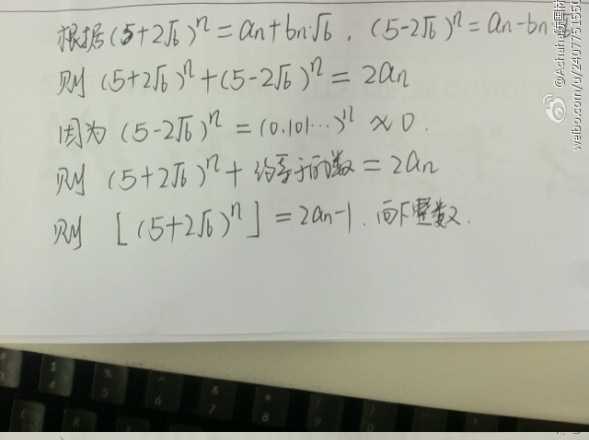 根据(5+2√6)^n=an+bn√6, (5-2√6)^n=an-bn√6
则 (5+2√6)^n+(5-2√6)^n=2an
因为 (5-2√6)^n=(0.101…)^n≈0.
则 (5+2√6)^n+约等于0的数=2an
则 [(5+2√6)^n]=2an-1. 向下整数.
weibo.com/u/2407751550